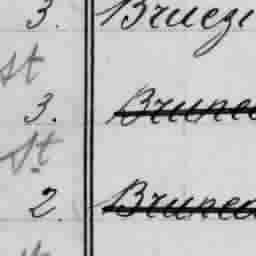 3. Bruezi
st
3. Brunea
St
2. Brunea